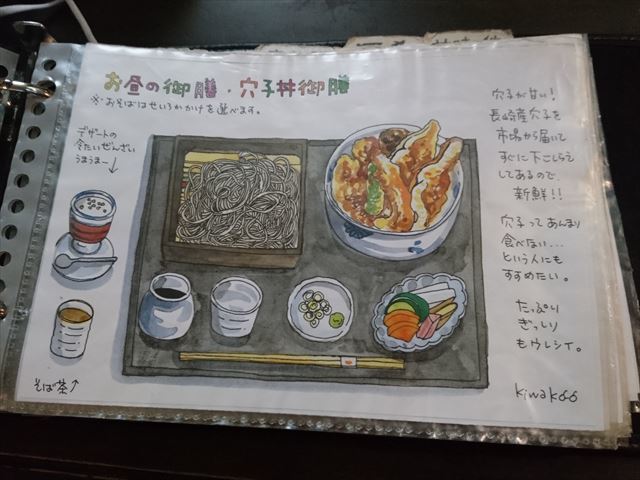 お昼の御膳・穴子丼御膳
※おそばはせいろかかけを選べます。
デザートの
冷たいぜんざい
うまうまー↓
穴子が甘い!
長崎産穴子を
市場から届いて
すぐに下ごしらえ
してあるので、
新鮮!!
穴子ってあんまり
食べない…
という人にも
すすめたい。
たっぷり
ぎっしり
もウレシイ。
そば茶↑